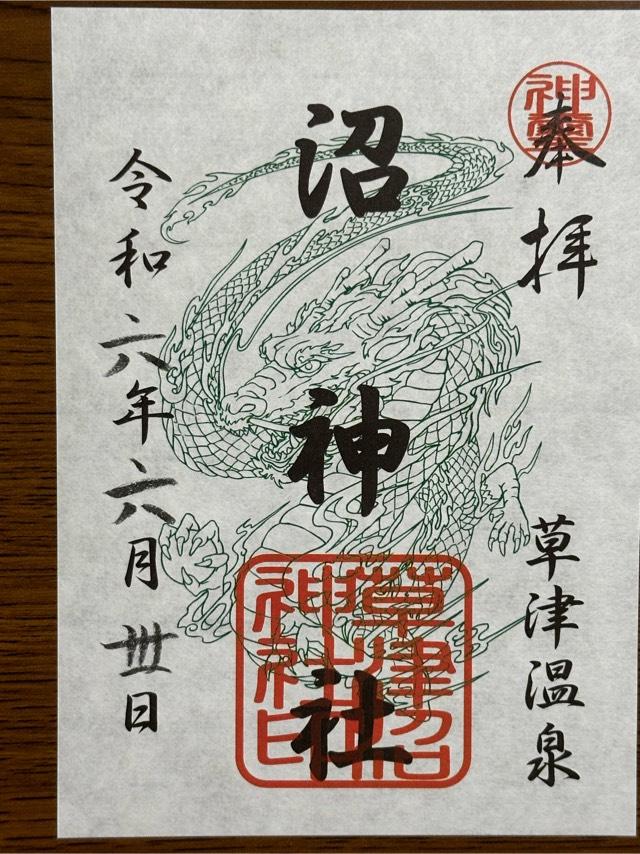 奉拝
草津温泉
沼神社
草津沼
神社印
令和六年六月丗日